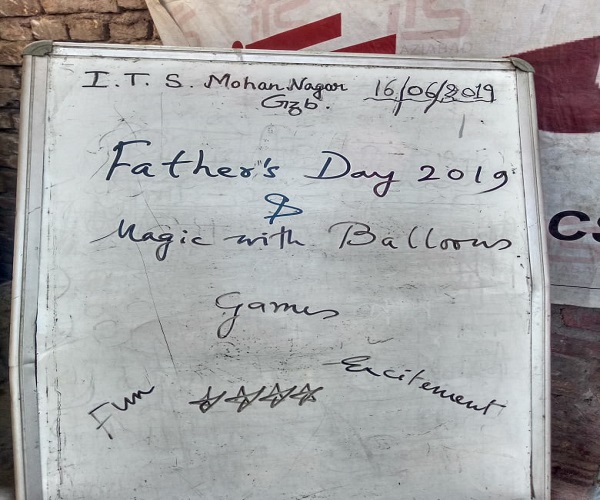 I.T.S. Mohan Nagar 16/06/2019
Gzb.
Father's Day 2019
&
Magic with Balloons
Games
Excitement
Fun
CS